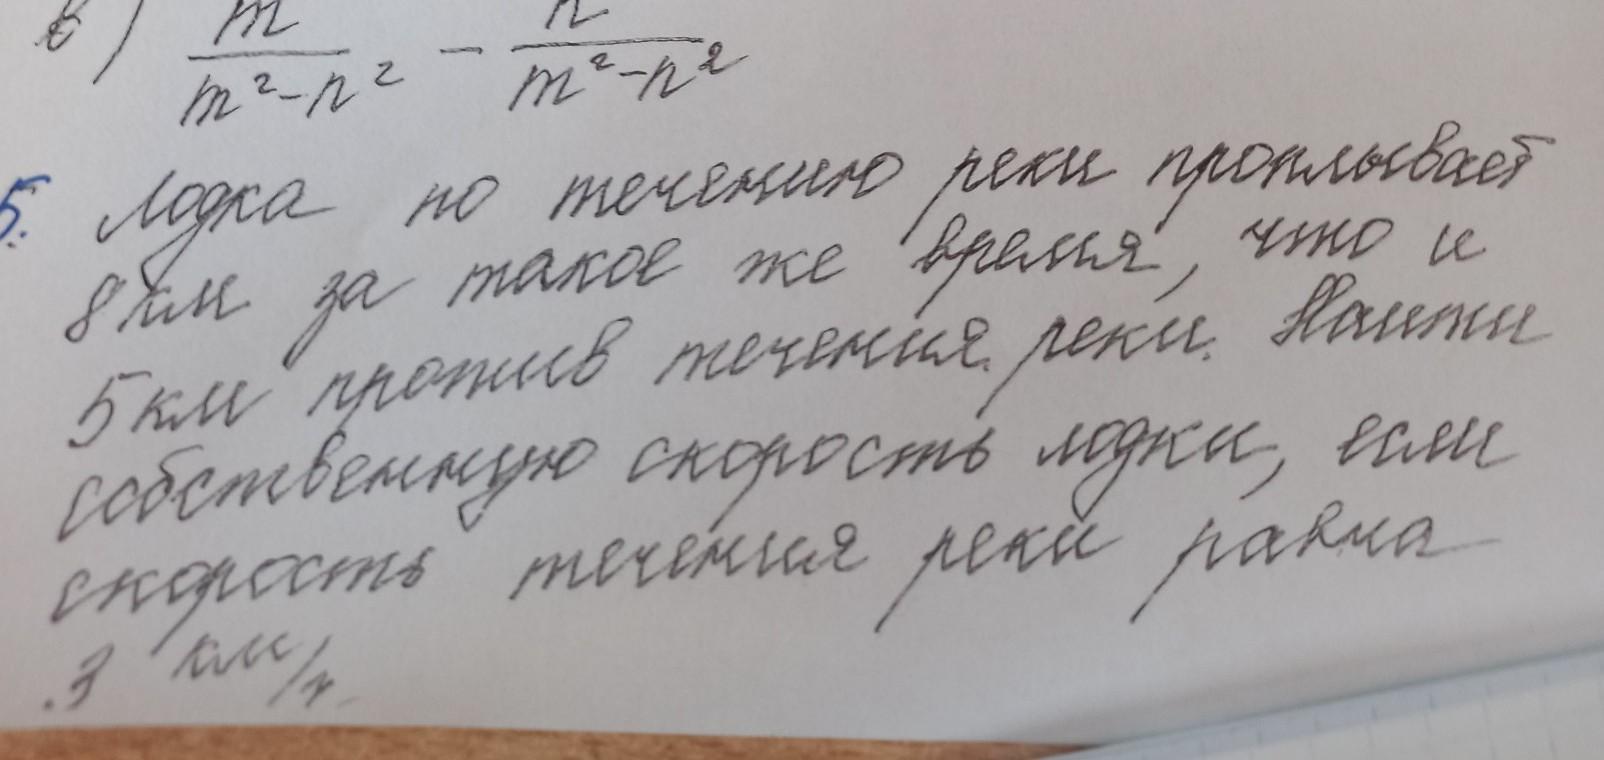 в) m/(m²-n²) - n/(m²-n²)
5. Лодка по течению реки проплывает
8 км за такое же время, что и
5 км против течения реки. Найти
собственную скорость лодки, если
скорость течения реки равна
3 км/ч.